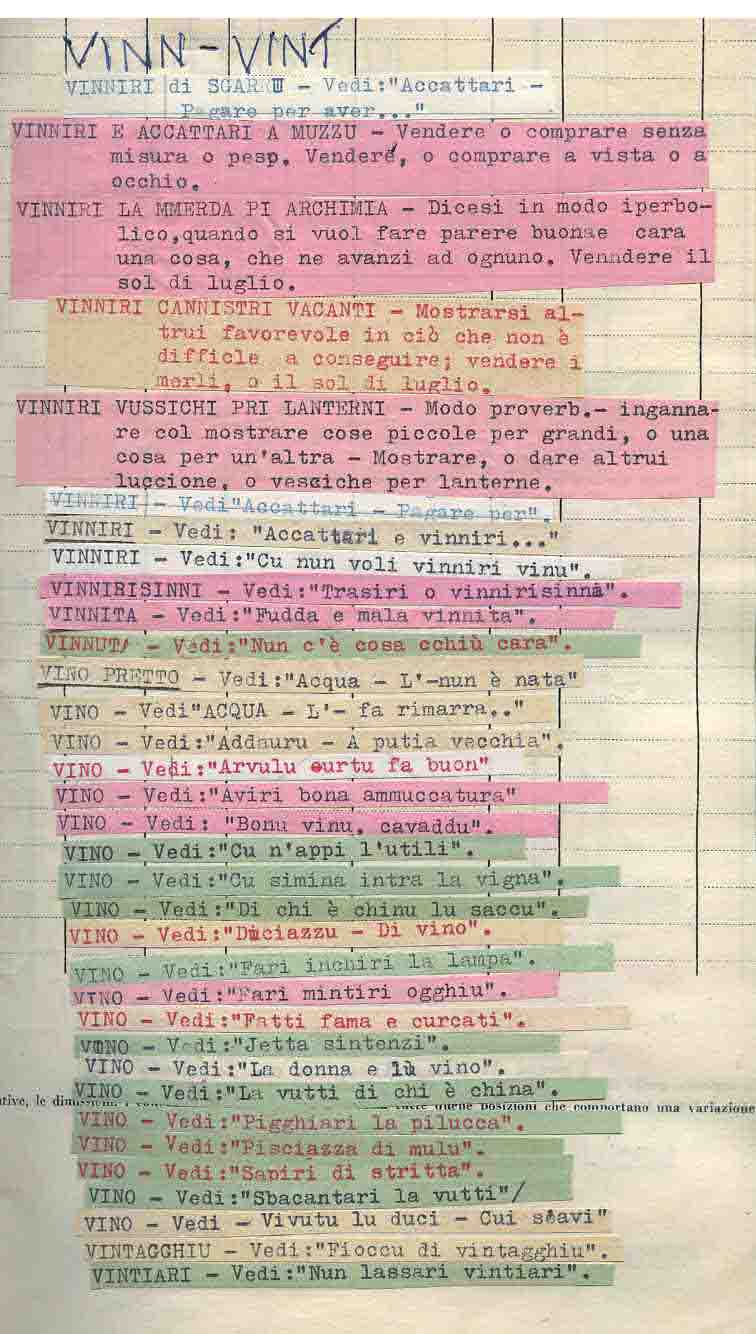 VINN-VINT
VINNIRI di SGARRU - Vedi:"Accattari -
Pagare per aver..."
VINNIRI E ACCATTARI A MUZZU - Vendere o comprare senza
misura o pesp. Vendere, o comprare a vista o a
occhio.
VINNIRI LA MMERDA PI ARCHIMIA - Dicesi in modo iperbo-
lico,quando si vuol fare parere buonae cara
una cosa, che ne avanzi ad ognuno. Venndere il
sol di luglio.
VINNIRI CANNISTRI VACANTI - Mostrarsi al-
trui favorevole in ciò che non è
difficle a conseguire; vendere i
merli, o il sol di luglio.
VINNIRI VUSSICHI PRI LANTERNI - Modo proverb.- inganna-
re col mostrare cose piccole per grandi, o una
cosa per un'altra - Mostrare, o dare altrui
luccione, o vesciche per lanterne.
VINNIRI - Vedi"Accattari - Pagare per".
VINNIRI - Vedi: "Accattari e vinniri..."
VINNIRI - Vedi:"Cu nun voli vinniri vinu".
VINNIRISINNI - Vedi:"Trasiri o vinnirisinna".
VINNITA - Vedi:"Fudda e mala vinnita".
VINNUTA - Vedi:"Nun c'è cosa cchiù cara".
VINO PRETTO - Vedi:"Acqua - L'-nun è nata"
VINO - Vedi"ACQUA - L'- fa rimarra.."
VINO - Vedi:"Addauru - A putia vecchia".
VINO - Vedi:"Arvulu curtu fa buon"
VINO - Vedi:"Aviri bona ammuccatura"
VINO - Vedi: "Bonu vinu, cavaddu".
VINO - Vedi:"Cu n'appi l'utili".
VINO - Vedi:"Cu simina intra la vigna".
VINO - Vedi:"Di chi è chinu lu saccu".
VINO - Vedi:"Duciazzu - Di vino".
VINO - Vedi:"Fari inchiri la lampa".
VINO - Vedi:"Fari mintiri ogghiu".
VINO - Vedi:"Fatti fama e curcati".
VINO - Vedi:"Jetta sintenzi".
VINO - Vedi:"La donna e lu vino".
VINO - Vedi:"La vutti di chi è china".
ative, le posizioni che comportano una variazione
VINO - Vedi:"Pigghiari la pilucca".
VINO - Vedi:"Pisciazza di mulu".
VINO - Vedi:"Sapiri di stritta".
VINO - Vedi:"Sbacantari la vutti"/
VINO - Vedi - Vivutu lu duci - Cui
VINTAGGHIU - Vedi:"Fioccu di vintagghiu".
VINTIARI - Vedi:"Nun lassari vintiari".